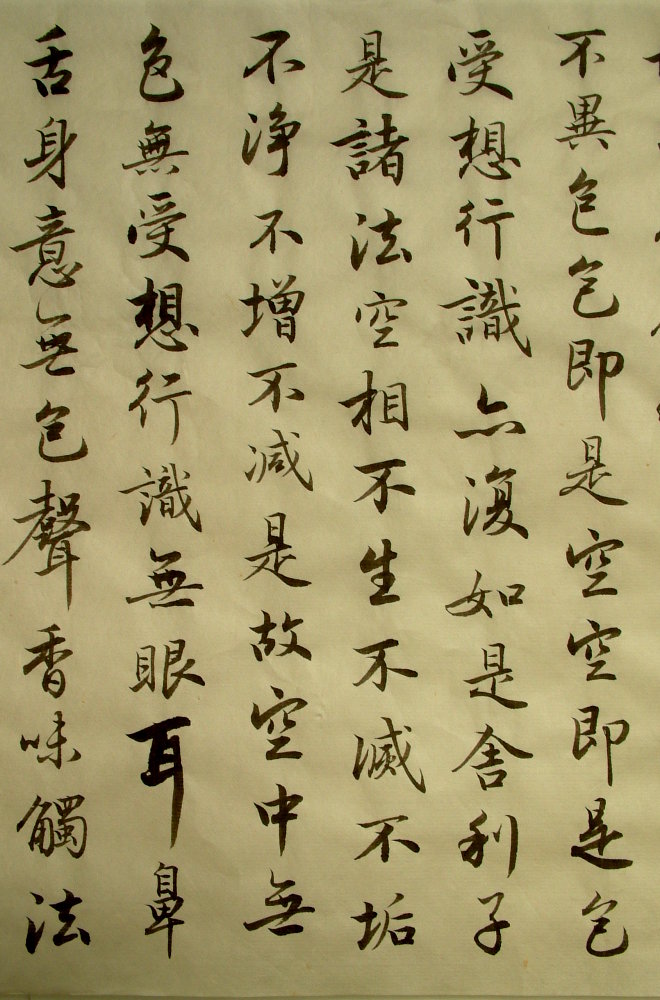 不異色色即是空空即是色
受想行識亦復如是舍利子
是諸法空相不生不滅不垢
不淨不增不減是故空中無
色無受想行識無眼耳鼻
舌身意無色聲香味觸法